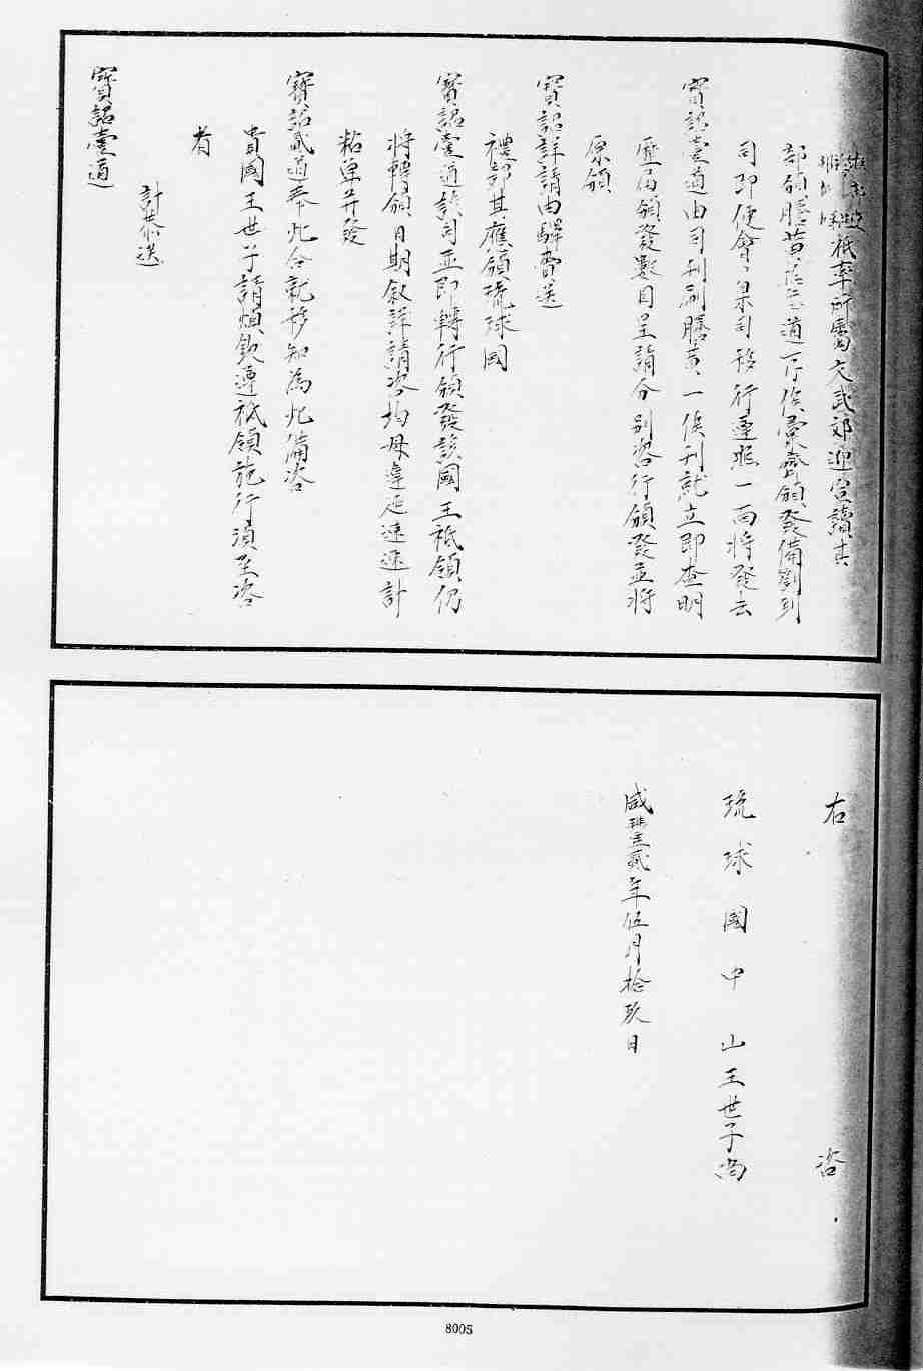 祇率所屬文武郊迎宣讀其
部頒謄黃壹道一併俟彙齊頒發備劄到
司即便會同臬司移行遵照一面將發去
寶詔壹道由司刊刷謄黃一俟刊就立即查明
歷屆頒發數目呈請分別咨行頒發並將
原頒
寶詔詳請由驛賫送
禮部其應頒琉球國
寶詔壹道該司並即轉行頒發該國王祗領仍
將轉頒日期敘詳請咨均毋違延速速計
粘單并發
寶詔貳道奉此合就移知為此備咨
貴國王世子請煩欽遵祗領施行須至咨
者
計恭送
寶詔壹道
右 咨
琉球國中山王世子尚
咸豐貳年伍月拾玖日
8005